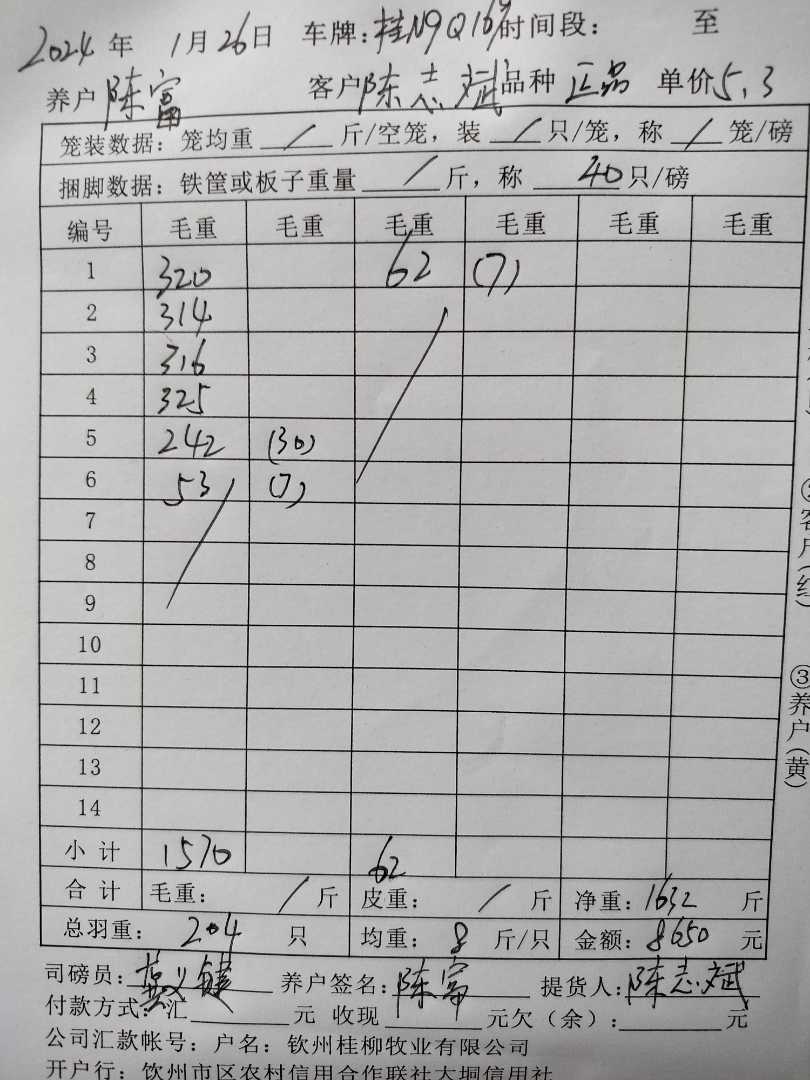 2024年 1月26日 车牌:桂N9Q169时间段: 至
养户 陈富 客户 陈志斌 品种 正品 单价 5.3
笼装数据: 笼均重 / 斤/空笼, 装 / 只/笼, 称 / 笼/磅
捆脚数据: 铁筐或板子重量 / 斤, 称 40 只/磅
编号 毛重 毛重 毛重 毛重 毛重 毛重
1 320 62 (7)
2 314
3 316
4 325
5 242 (30)
6 53 (7)
7
8
9
10
11
12
13
14
小计 1570 62
合计 毛重: / 斤 皮重: / 斤 净重: 1632 斤
总羽重: 204 只 均重: 8 斤/只 金额: 8650 元
司磅员: 养户签名: 陈富 提货人: 陈志斌
付款方式: 汇 元 收现 元欠(余): 元
公司汇款帐号: 户名: 钦州桂柳牧业有限公司
开户行: 钦州市区农村信用合作联社大垌信用社
客户(红)
③养户(黄)